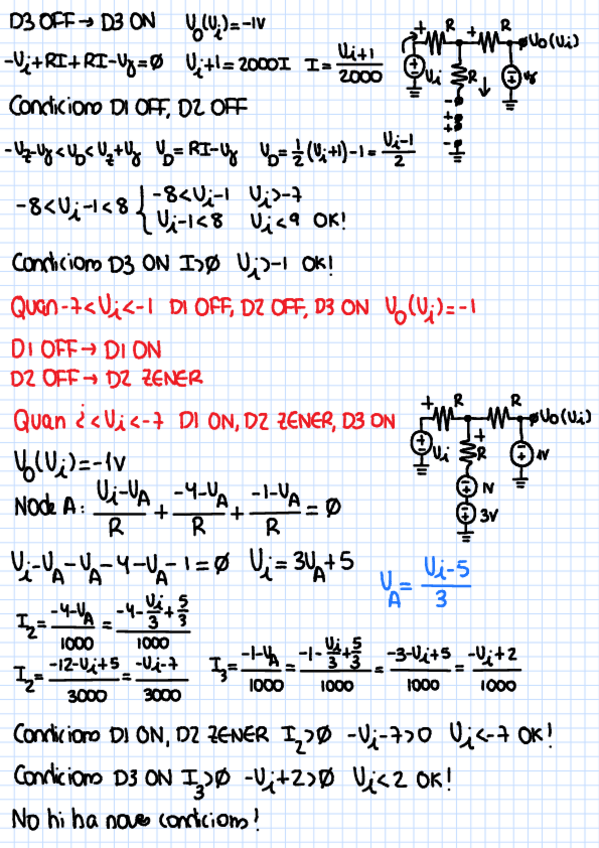 D3 OFF → D3 ON Vo(Vi)=-1V
-Vi+RI+RI-Vγ=0 Vi+1=2000I I=(Vi+1)/2000
Condicions D1 OFF, D2 OFF
-Vz-Vγ<VD<Vz+Vγ VD=RI-Vγ VD=1/2(Vi+1)-1=(Vi-1)/2
-8<Vi-1<8 { -8<Vi-1 Vi>-7
Vi-1<8 Vi<9 OK!
Condicions D3 ON I>0 Vi>-1 OK!
Quan -7<Vi<-1 D1 OFF, D2 OFF, D3 ON Vo(Vi)=-1
D1 OFF → D1 ON
D2 OFF → D2 ZENER
Quan ¿<Vi<-7 D1 ON, D2 ZENER, D3 ON
Vo(Vi)=-1V
Node A: (Vi-VA)/R + (-4-VA)/R + (-1-VA)/R = 0
Vi-VA-VA-4-VA-1=0 Vi=3VA+5
VA=(Vi-5)/3
I2=(-4-VA)/1000=(-4-Vi/3+5/3)/1000
I2=(-12-Vi+5)/3000=(-Vi-7)/3000 I3=(-1-VA)/1000=(-1-Vi/3+5/3)/1000=(-3-Vi+5)/1000=(-Vi+2)/1000
Condicions D1 ON, D2 ZENER I2>0 -Vi-7>0 Vi<-7 OK!
Condicions D3 ON I3>0 -Vi+2>0 Vi<2 OK!
No hi ha noves condicions!
+ R + R Vo(Vi)
Vi R Vγ
+ R R Vo(Vi)
Vi + R 1V
1V
3V